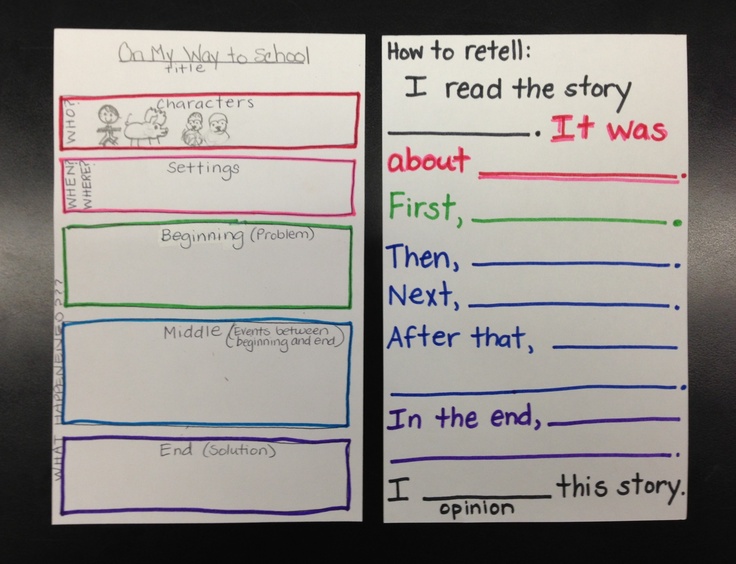 On My Way to School
title
WHO?
Characters
WHEN?
WHERE?
Settings
Beginning (Problem)
WHAT HAPPENEINEO???
Middle (Events between
beginning and end)
End (Solution)
How to retell:
I read the story
__________. It was
about __________.
First, __________.
Then, __________.
Next, __________.
After that, __________
__________.
In the end, __________
__________.
I __________ this story.
opinion